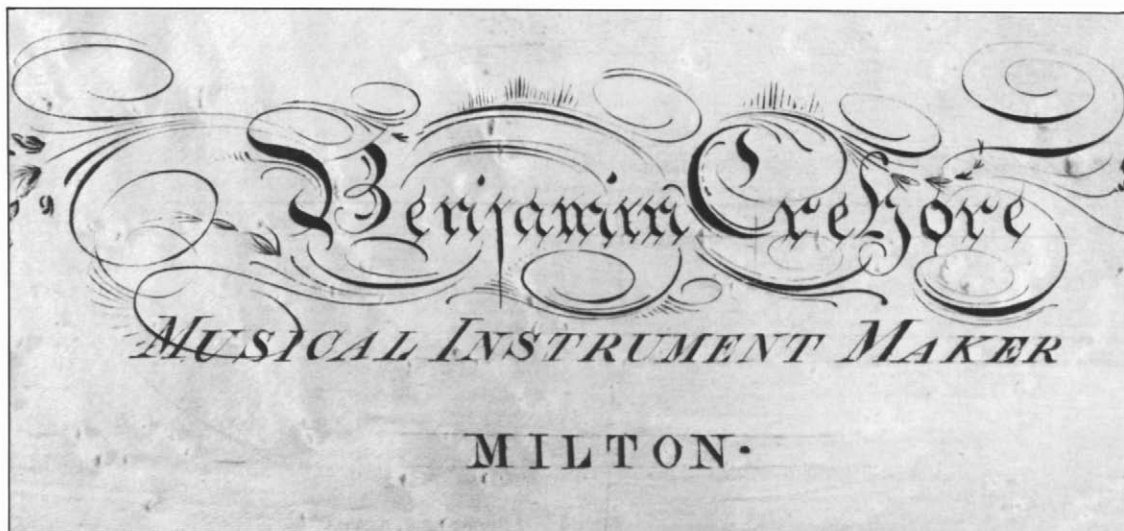 Benjamin Crehore
MUSICAL INSTRUMENT MAKER
MILTON.